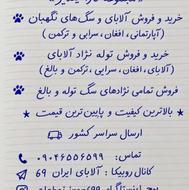 خرید و فروش آلابای و سگ‌های نگهبان
(آپارتمانی ، افغان ، سرابی و ترکمن)
خرید و فروش توله نژاد آلابای
(آلابای ، افغان ، سرابی ، ترکمن و بالغ)
فروش تمامی نژادهای سگ توله و بالغ
★ بالاترین کیفیت و پایین‌ترین قیمت ★
ارسال سراسر کشور
تماس: ۰۹۰۴۶۵۵۶۵۹۹
کانال روبیکا: آلابای ایران 69
پیج اینستاگرام